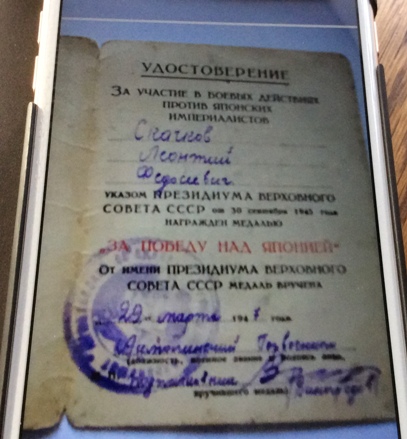 УДОСТОВЕРЕНИЕ
ЗА УЧАСТИЕ В БОЕВЫХ ДЕЙСТВИЯХ
ПРОТИВ ЯПОНСКИХ
ИМПЕРИАЛИСТОВ
Скачков
Леонтий
Федосеевич
УКАЗОМ ПРЕЗИДИУМА ВЕРХОВНОГО
СОВЕТА СССР от 30 сентября 1945 года
НАГРАЖДЕН МЕДАЛЬЮ
„ЗА ПОБЕДУ НАД ЯПОНИЕЙ“
ОТ ИМЕНИ ПРЕЗИДИУМА ВЕРХОВНОГО
СОВЕТА СССР МЕДАЛЬ ВРУЧЕНА
„22“ марта 1947 года
(должность, воинское звание и подпись лица,
вручившего медаль)